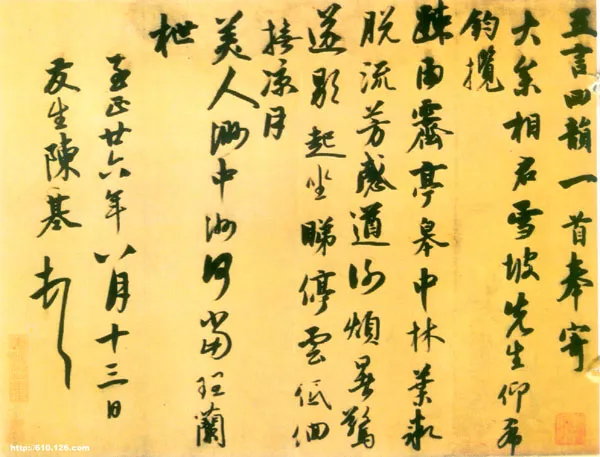 五言四韻一首奉寄
大參相君雪坡先生仰希
鈞攬
踈雨霽亭皋中林葉
脫流芳感遒謝煩暑驚
遂歇起坐睇停雲低佪
涼月
美人渺中洲何當理蘭
枻
至正廿六年八月十三日
友生陳基
http://610.126.com